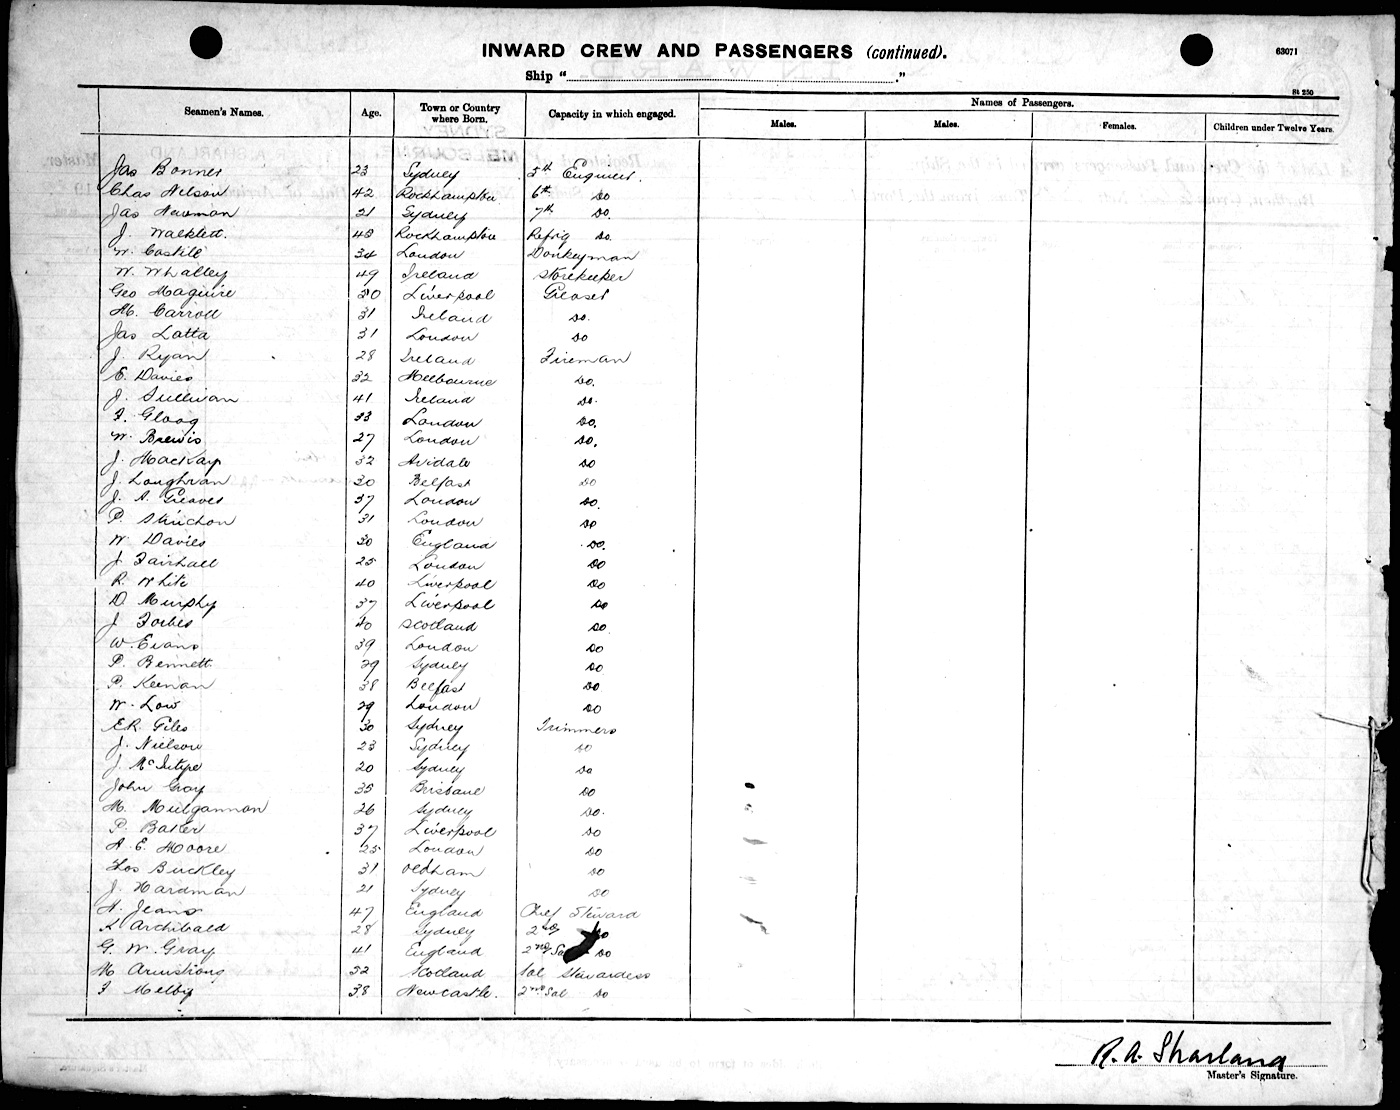 INWARD CREW AND PASSENGERS (continued).
63071
Ship " ."
St 250
Seamen's Names. Age. Town or Country where Born. Capacity in which engaged. Names of Passengers.
Males. Males. Females. Children under Twelve Years.
Jas Bonner 23 Sydney 5th Engineer.
Chas Nelson 42 Rockhampton 6th Do
Jas Newman 21 Sydney 7th Do.
J. Walklett. 43 Rockhampton Refrig Do.
W. Castile 34 London Donkeyman
W. Whalley 49 Ireland Storekeeper
Geo Maguire 30 Liverpool Greaser
M. Carroll 31 Ireland Do.
Jas Latta 31 London Do
J. Ryan 28 Ireland Fireman
E. Davies 32 Melbourne Do.
J. Sullivan 41 Ireland Do.
F. Gloag 33 London Do.
W. Brewis 27 London Do.
J. Mackay 32 Do
J. Loughran 30 Belfast Do
J. A. Greaves 37 London Do.
P. 31 London Do
W Davies 30 England Do.
J Fairhall 25 London Do
R. White 40 Liverpool Do
D. Murphy 37 Liverpool Do
J Forbes 40 Scotland Do
W. Evans 39 London Do
P. Bennett 29 Sydney Do
P. Keenan 38 Belfast Do
W. Low 29 London Do
E.R. Giles 30 Sydney Trimmers
J. Nielson 23 Sydney Do
J. McIntyre 20 Sydney Do
John Gray 35 Brisbane Do
M. Mulgannon 26 Sydney Do.
P. Baker 37 Liverpool Do
A. E. Moore 25 London Do
Thos Buckley 31 Oldham Do
J. Hardman 21 Sydney Do
H. Jeans 47 England Chief Steward
Archibald 28 Sydney 2nd Do
G. W. Gray 41 England 2nd Sal Do
M Armstrong 32 Scotland Sal Stewardess
F Melby 38 Newcastle. 2nd Sal Do
R. A. Sharland
Master's Signature.